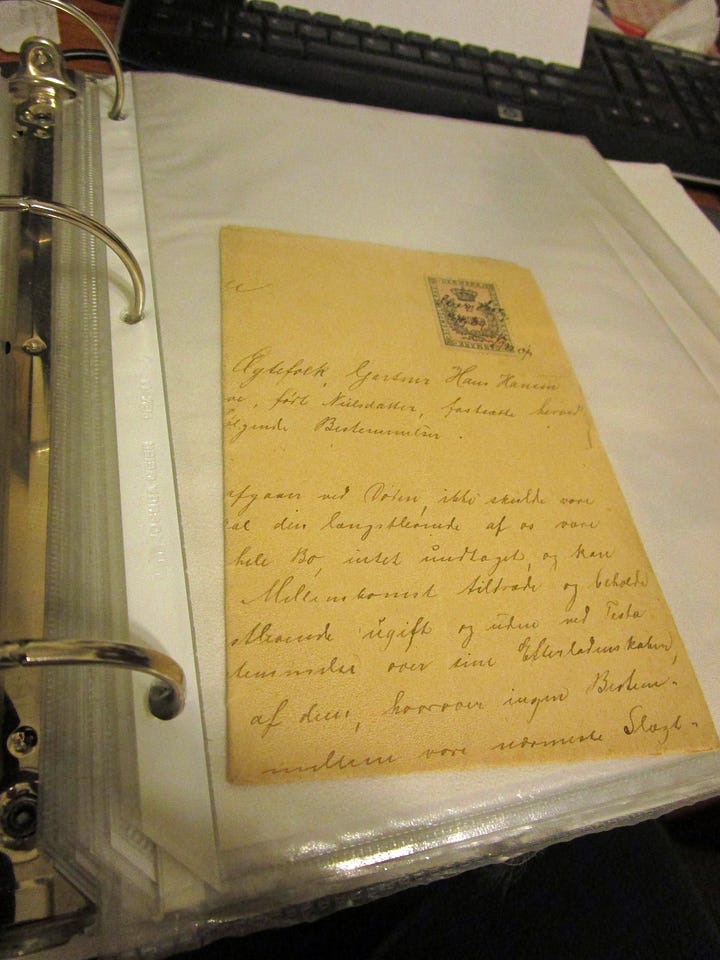 DANMARK
Ægtefolk, Gartner Hans Hansen
født Nielsdatter, fastsætte herved
følgende Bestemmelser.
afgaaer ved Døden, ikke skulde være
skal den længstlevende af os være
hele Bo, intet undtaget, og kan
Mellemkomst tiltræde og beholde
ugift og uden ved Testa
temmelse over sine Efterladenskaber,
af dem, hvorover ingen Bestem-
mellem vore nærmeste Slægt-
hp